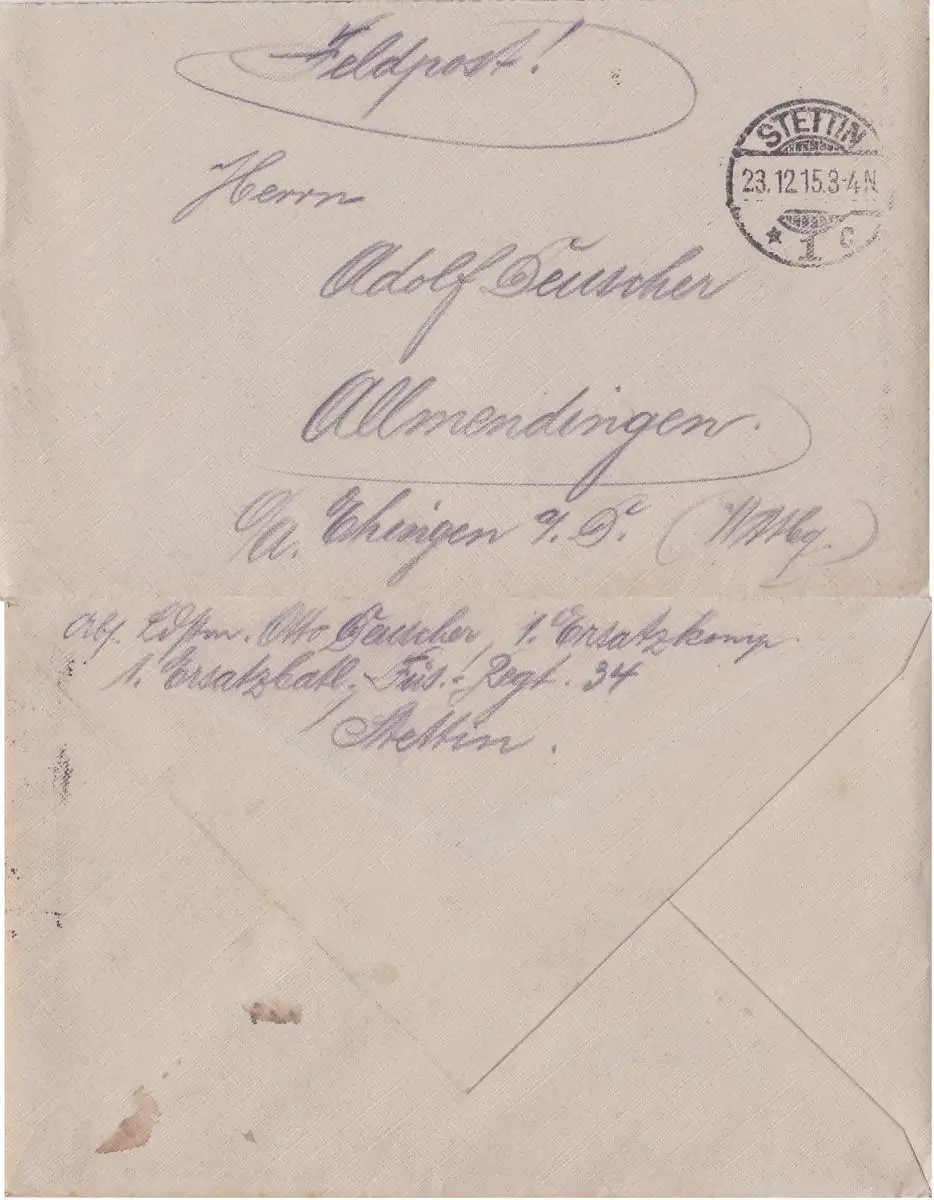 Feldpost!
STETTIN
23.12.15.3-4N.
* 1 c
Herrn
Adolf Teuscher
Allmendingen.
O/A. Ehingen a/D. (Wttbg.)
Abs. Ldstm. Otto Teuscher, 1. Ersatzkomp.
1. Ersatzbatl. Füs.-Regt. 34
Stettin.